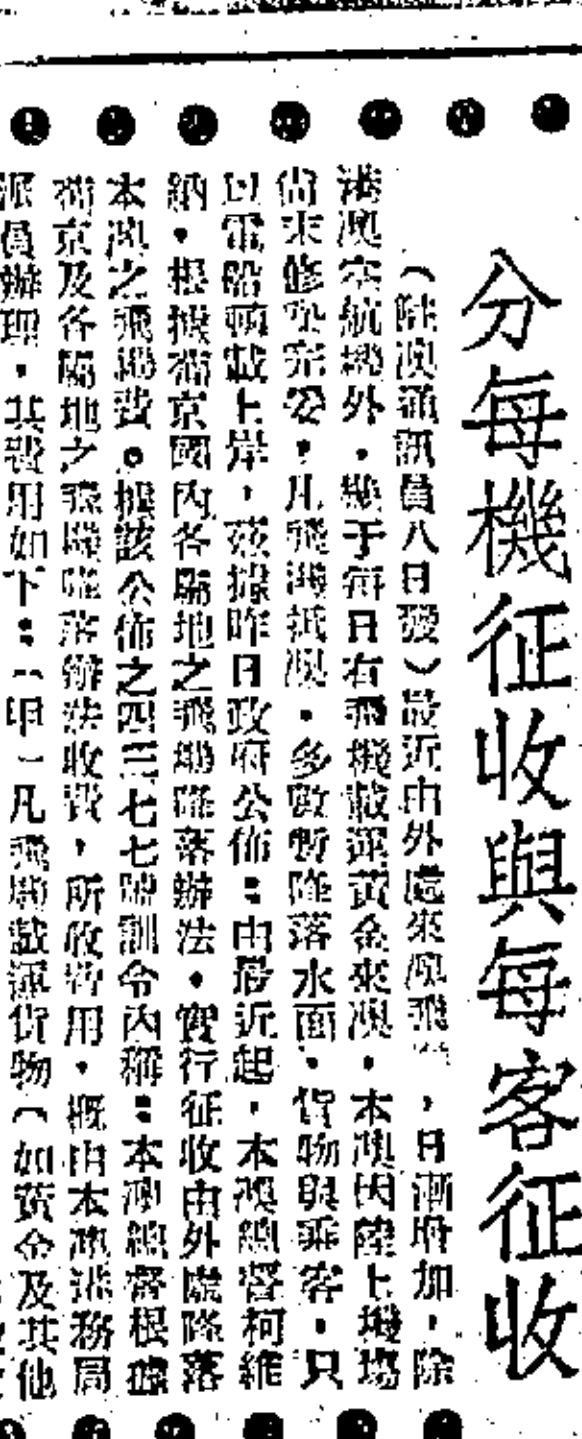 分每機征收與每客征收
(陸澳通訊員八日發)最近由外處來澳飛機,日漸增加,除
港澳客航機外,幾于每日有飛機載運黃金來澳,本澳因陸上機塲
尚未修築完妥,凡飛機抵澳,多數暫降落水面,貨物與乘客,只
以電船頓載上岸,茲據昨日政府公佈:由最近起,本澳總督柯維
納,根據葡京國內各屬地之飛機降落辦法,實行征收由外處降落
本澳之飛機費。根據該公佈之四三七七號訓令內稱:本澳總督根據
葡京及各屬地之飛機降落辦法收費,所收費用,概由本澳港務局
派員辦理,其費用如下:(甲)凡飛機載運貨物(如黃金及其他